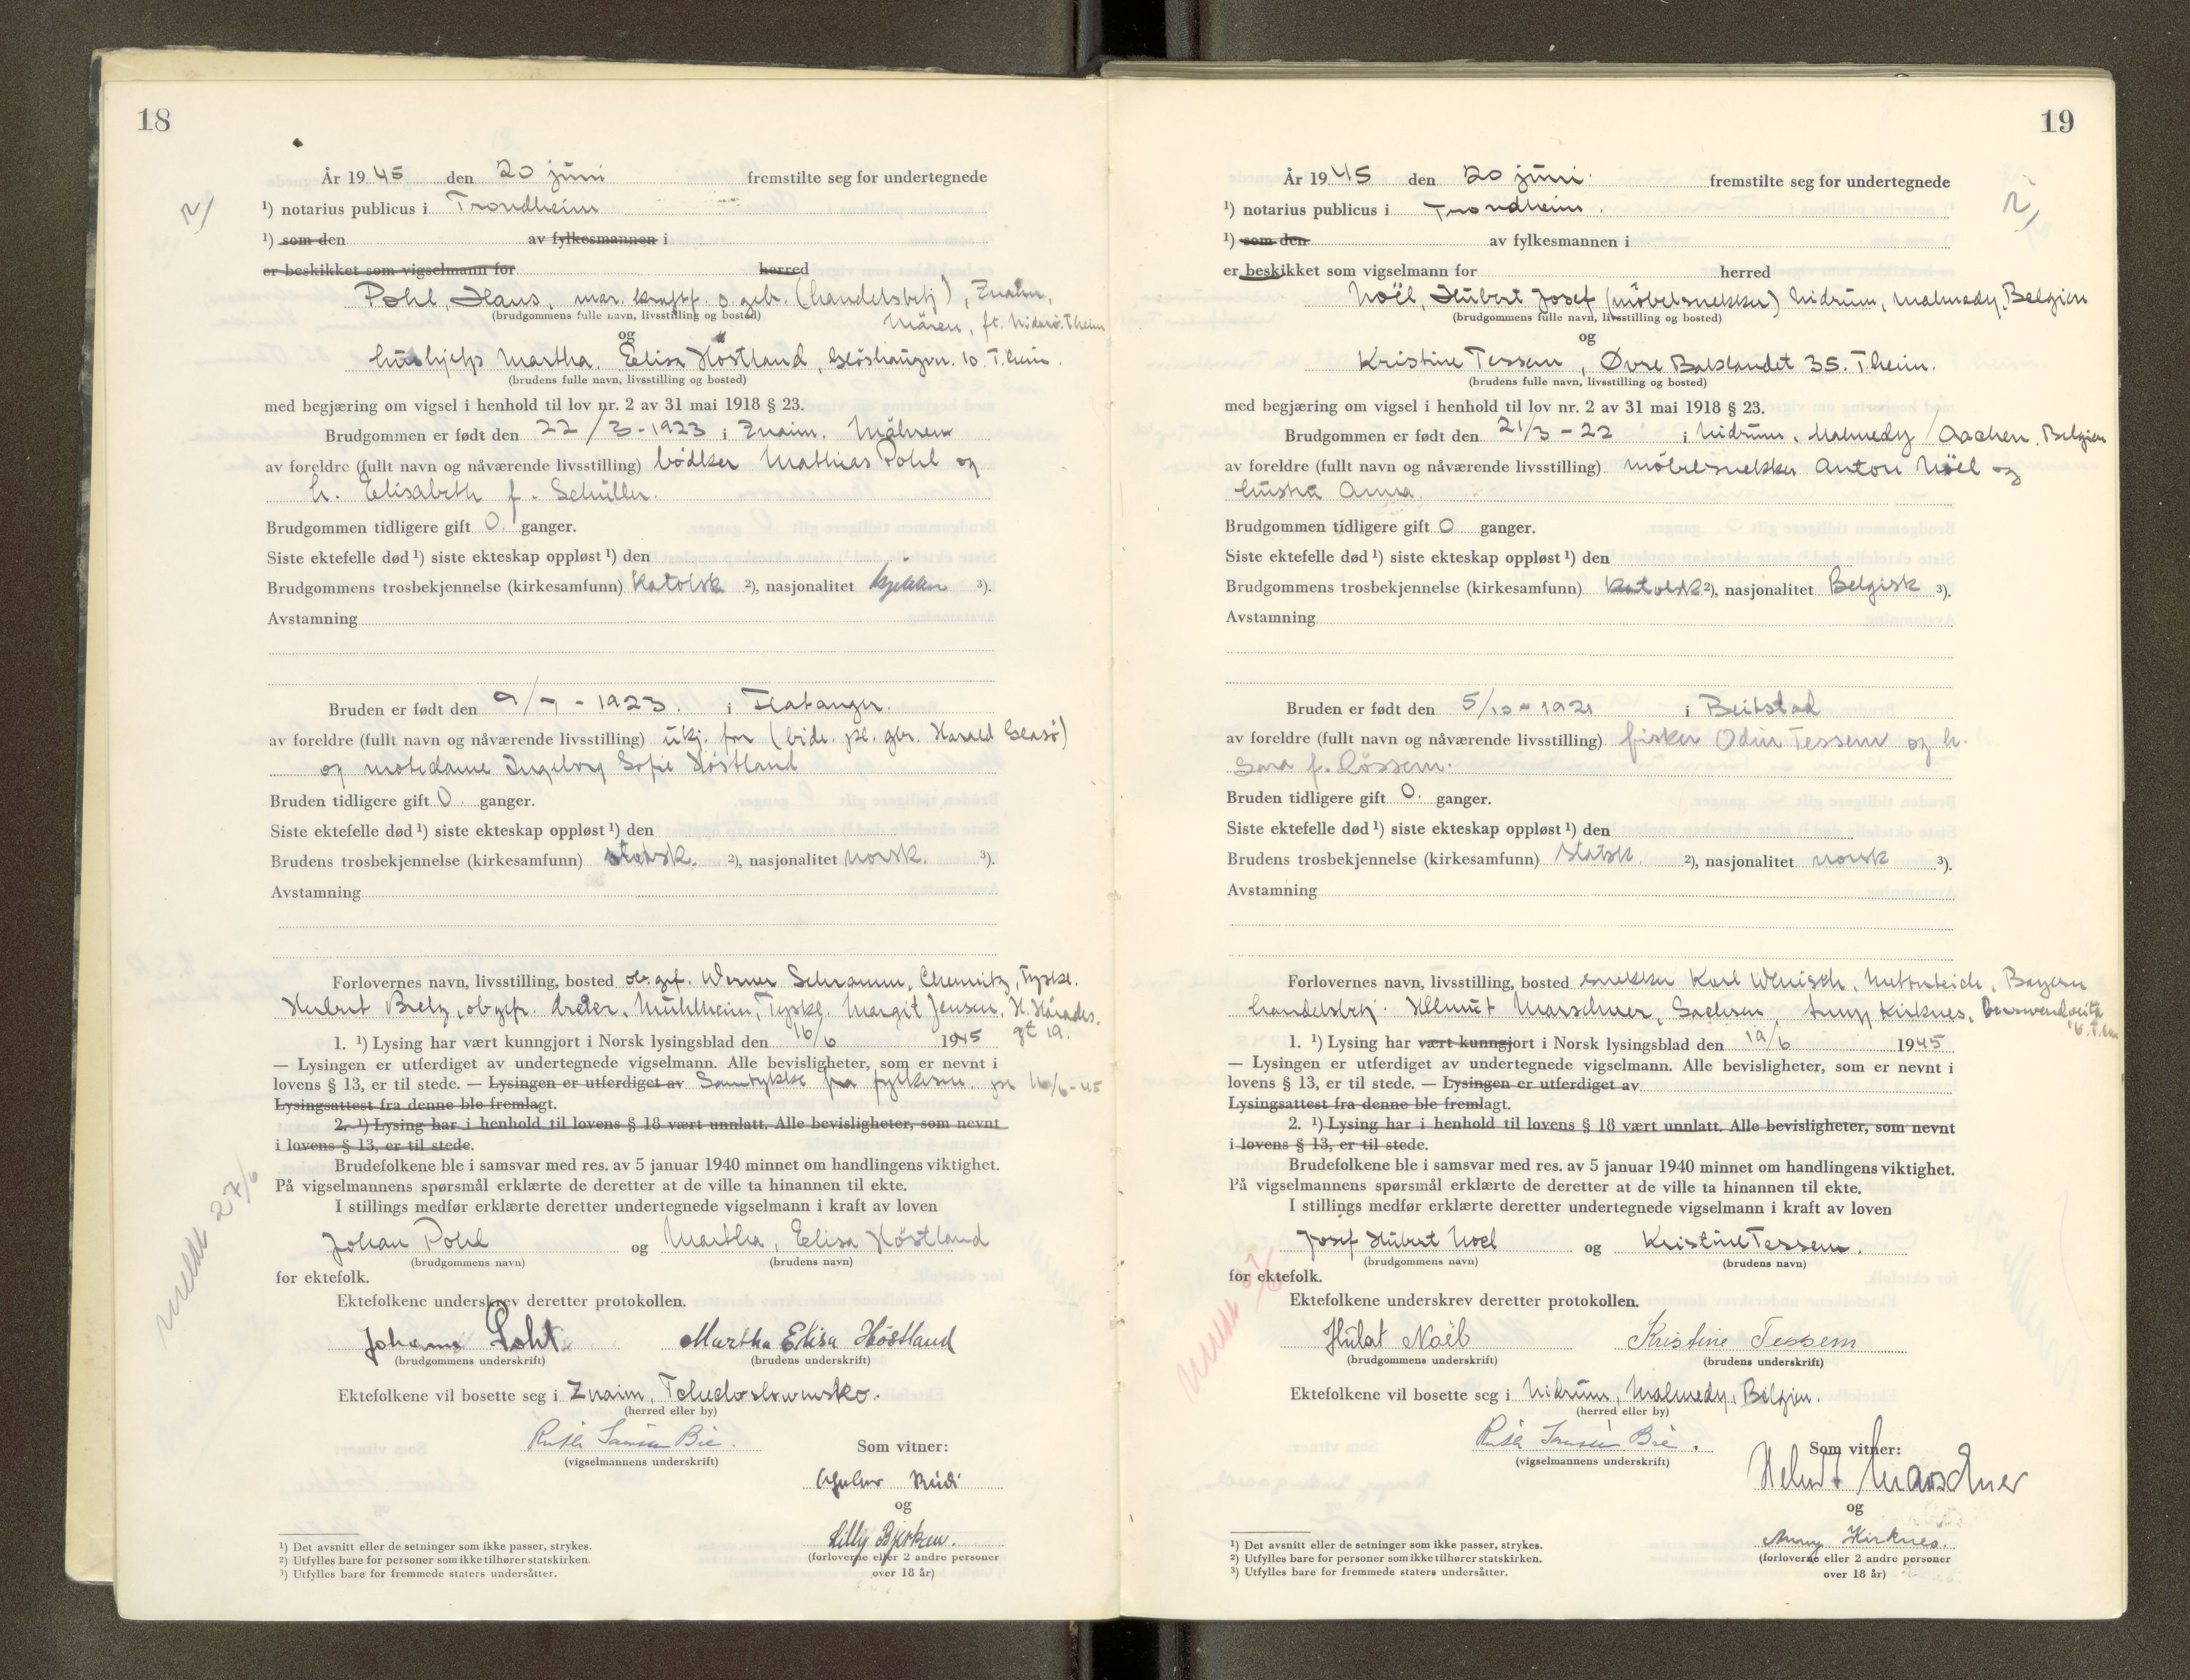 18
År 1945 den 20 juni fremstilte seg for undertegnede
2/
¹) notarius publicus i Trondheim
¹) som den av fylkesmannen i
er beskikket som vigselmann for herred
Pohl, Hans, mar. o. gefr. (handelsbetj), Znaim,
(brudgommens fulle navn, livsstilling og bosted)
Mären, ft. T.heim
og
hushjelp Martha Elisa Höstland, 10 T.heim.
(brudens fulle navn, livsstilling og bosted)
med begjæring om vigsel i henhold til lov nr. 2 av 31 mai 1918 § 23.
Brudgommen er født den 22/3-1923 i Znaim. Mähren
av foreldre (fullt navn og nåværende livsstilling) bödker Mathias Pohl og
h. Elisabeth f. Schüller.
Brudgommen tidligere gift 0. ganger.
Siste ektefelle død ¹) siste ekteskap oppløst ¹) den
Brudgommens trosbekjennelse (kirkesamfunn) katolsk ²), nasjonalitet ³).
Avstamning
Bruden er født den 9/7-1923. i Flatanger.
av foreldre (fullt navn og nåværende livsstilling) ukj. far (Harald
og motedame Ingeborg Sofie Höstland
Bruden tidligere gift 0. ganger.
Siste ektefelle død ¹) siste ekteskap oppløst ¹) den
Brudens trosbekjennelse (kirkesamfunn) statsk. ²), nasjonalitet norsk. ³).
Avstamning
Forlovernes navn, livsstilling, bosted ob.gef. Werner Schramm, Chemnitz, Tyskl.
Herbert Bretz, obgefr. Mühlheim, Tyskl. Margit Jensen, H. Hårades.
gt 19.
1. ¹) Lysing har vært kunngjort i Norsk lysingsblad den 16/6 1945
— Lysingen er utferdiget av undertegnede vigselmann. Alle bevisligheter, som er nevnt i
lovens § 13, er til stede. — Lysingen er utferdiget av Samtykke fra fylkesm. 16/6-45
Lysingsattest fra denne ble fremlagt.
2. ¹) Lysing har i henhold til lovens § 18 vært unnlatt. Alle bevisligheter, som nevnt
i lovens § 13, er til stede.
Brudefolkene ble i samsvar med res. av 5 januar 1940 minnet om handlingens viktighet.
På vigselmannens spørsmål erklærte de deretter at de ville ta hinannen til ekte.
I stillings medfør erklærte deretter undertegnede vigselmann i kraft av loven
Johan Pohl og Martha, Elisa Höstland
(brudgommens navn) (brudens navn)
for ektefolk.
meldt 27/6
Ektefolkene underskrev deretter protokollen.
Johann Pohl Martha Elisa Höstland
(brudgommens underskrift) (brudens underskrift)
Ektefolkene vil bosette seg i Znaim,
(herred eller by)
Ruth
(vigselmannens underskrift)
Som vitner:
og
Lilly
(forloverne eller 2 andre personer
over 18 år)
¹) Det avsnitt eller de setninger som ikke passer, strykes.
²) Utfylles bare for personer som ikke tilhører statskirken.
³) Utfylles bare for fremmede staters undersåtter.
19
År 1945 den 20 juni fremstilte seg for undertegnede
2/
¹) notarius publicus i Trondheim.
¹) som den av fylkesmannen i
er beskikket som vigselmann for herred
Noël, Hubert Josef (möbelsnekker) Nidrum, Malmedy, Belgien
(brudgommens fulle navn, livsstilling og bosted)
og
Kristine Tessem, Øvre Baklandet 35. T.heim.
(brudens fulle navn, livsstilling og bosted)
med begjæring om vigsel i henhold til lov nr. 2 av 31 mai 1918 § 23.
Brudgommen er født den 21/3-22 i Nidrum, Malmedy / Aachen, Belgien
av foreldre (fullt navn og nåværende livsstilling) möbelsnekker Anton Nöel og
hustru Anna
Brudgommen tidligere gift 0 ganger.
Siste ektefelle død ¹) siste ekteskap oppløst ¹) den
Brudgommens trosbekjennelse (kirkesamfunn) katolsk ²), nasjonalitet Belgisk ³).
Avstamning
Bruden er født den 5/10-1921 i Beitstad
av foreldre (fullt navn og nåværende livsstilling) fisker Odin Tessem og h.
Sara f.
Bruden tidligere gift 0. ganger.
Siste ektefelle død ¹) siste ekteskap oppløst ¹) den
Brudens trosbekjennelse (kirkesamfunn) statsk. ²), nasjonalitet norsk ³).
Avstamning
Forlovernes navn, livsstilling, bosted snekker Karl Wenisch, Bayern
handelsbetj. Helmut Marschner, Sachsen, Anny Kirknes,
1. ¹) Lysing har vært kunngjort i Norsk lysingsblad den 19/6 1945
— Lysingen er utferdiget av undertegnede vigselmann. Alle bevisligheter, som er nevnt i
lovens § 13, er til stede. — Lysingen er utferdiget av
Lysingsattest fra denne ble fremlagt.
2. ¹) Lysing har i henhold til lovens § 18 vært unnlatt. Alle bevisligheter, som nevnt
i lovens § 13, er til stede.
Brudefolkene ble i samsvar med res. av 5 januar 1940 minnet om handlingens viktighet.
På vigselmannens spørsmål erklærte de deretter at de ville ta hinannen til ekte.
I stillings medfør erklærte deretter undertegnede vigselmann i kraft av loven
Josef Hubert Noel og Kristine Tessem.
(brudgommens navn) (brudens navn)
for ektefolk.
meldt 27/6
Ektefolkene underskrev deretter protokollen.
Noël Kristine Tessem
(brudgommens underskrift) (brudens underskrift)
Ektefolkene vil bosette seg i Nidrum, Malmedy, Belgien.
(herred eller by)
Ruth
(vigselmannens underskrift)
Som vitner:
Helmut Marschner
og
Anny Kirknes.
(forloverne eller 2 andre personer
over 18 år)
¹) Det avsnitt eller de setninger som ikke passer, strykes.
²) Utfylles bare for personer som ikke tilhører statskirken.
³) Utfylles bare for fremmede staters undersåtter.